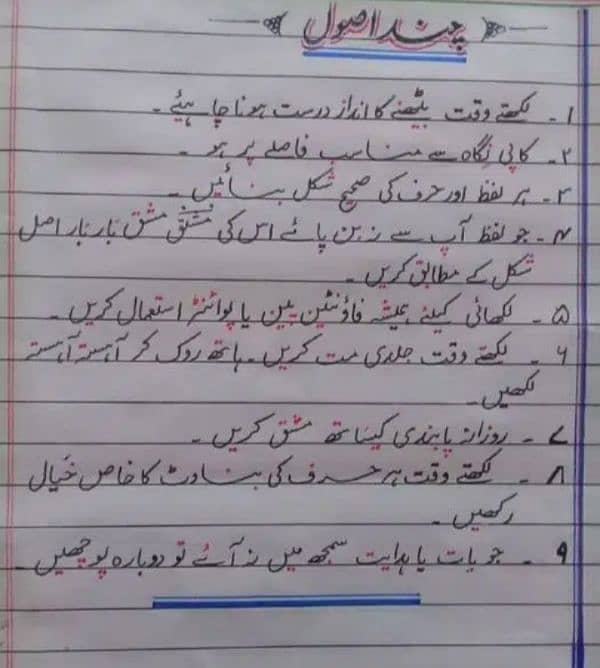 چند اصول
۱۔ لکھتے وقت بیٹھنے کا انداز درست ہونا چاہیئے۔
۲۔ کاپی نگاہ سے مناسب فاصلے پر ہو۔
۳۔ ہر لفظ اور حرف کی صحیح شکل بنائیں۔
۴۔ جو لفظ آپ سے نہ بن پائے اس کی مشق مشق بار بار اصل
شکل کے مطابق کریں۔
۵۔ لکھائی کیلئے ہمیشہ فاؤنٹین پین یا پوائنٹر استعمال کریں۔
۶۔ لکھتے وقت جلدی مت کریں۔ ہاتھ روک کر آہستہ آہستہ
لکھیں۔
۷۔ روزانہ پابندی کیساتھ مشق کریں۔
۸۔ لکھتے وقت ہر حرف کی بناوٹ کا خاص خیال
رکھیں۔
۹۔ جو بات یا ہدایت سمجھ میں نہ آئے تو دوبارہ پوچھیں۔